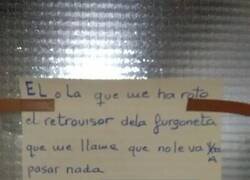 EL o La que me ha roto
el retrovisor dela furgoneta
que me llame que no le va
pasar nada